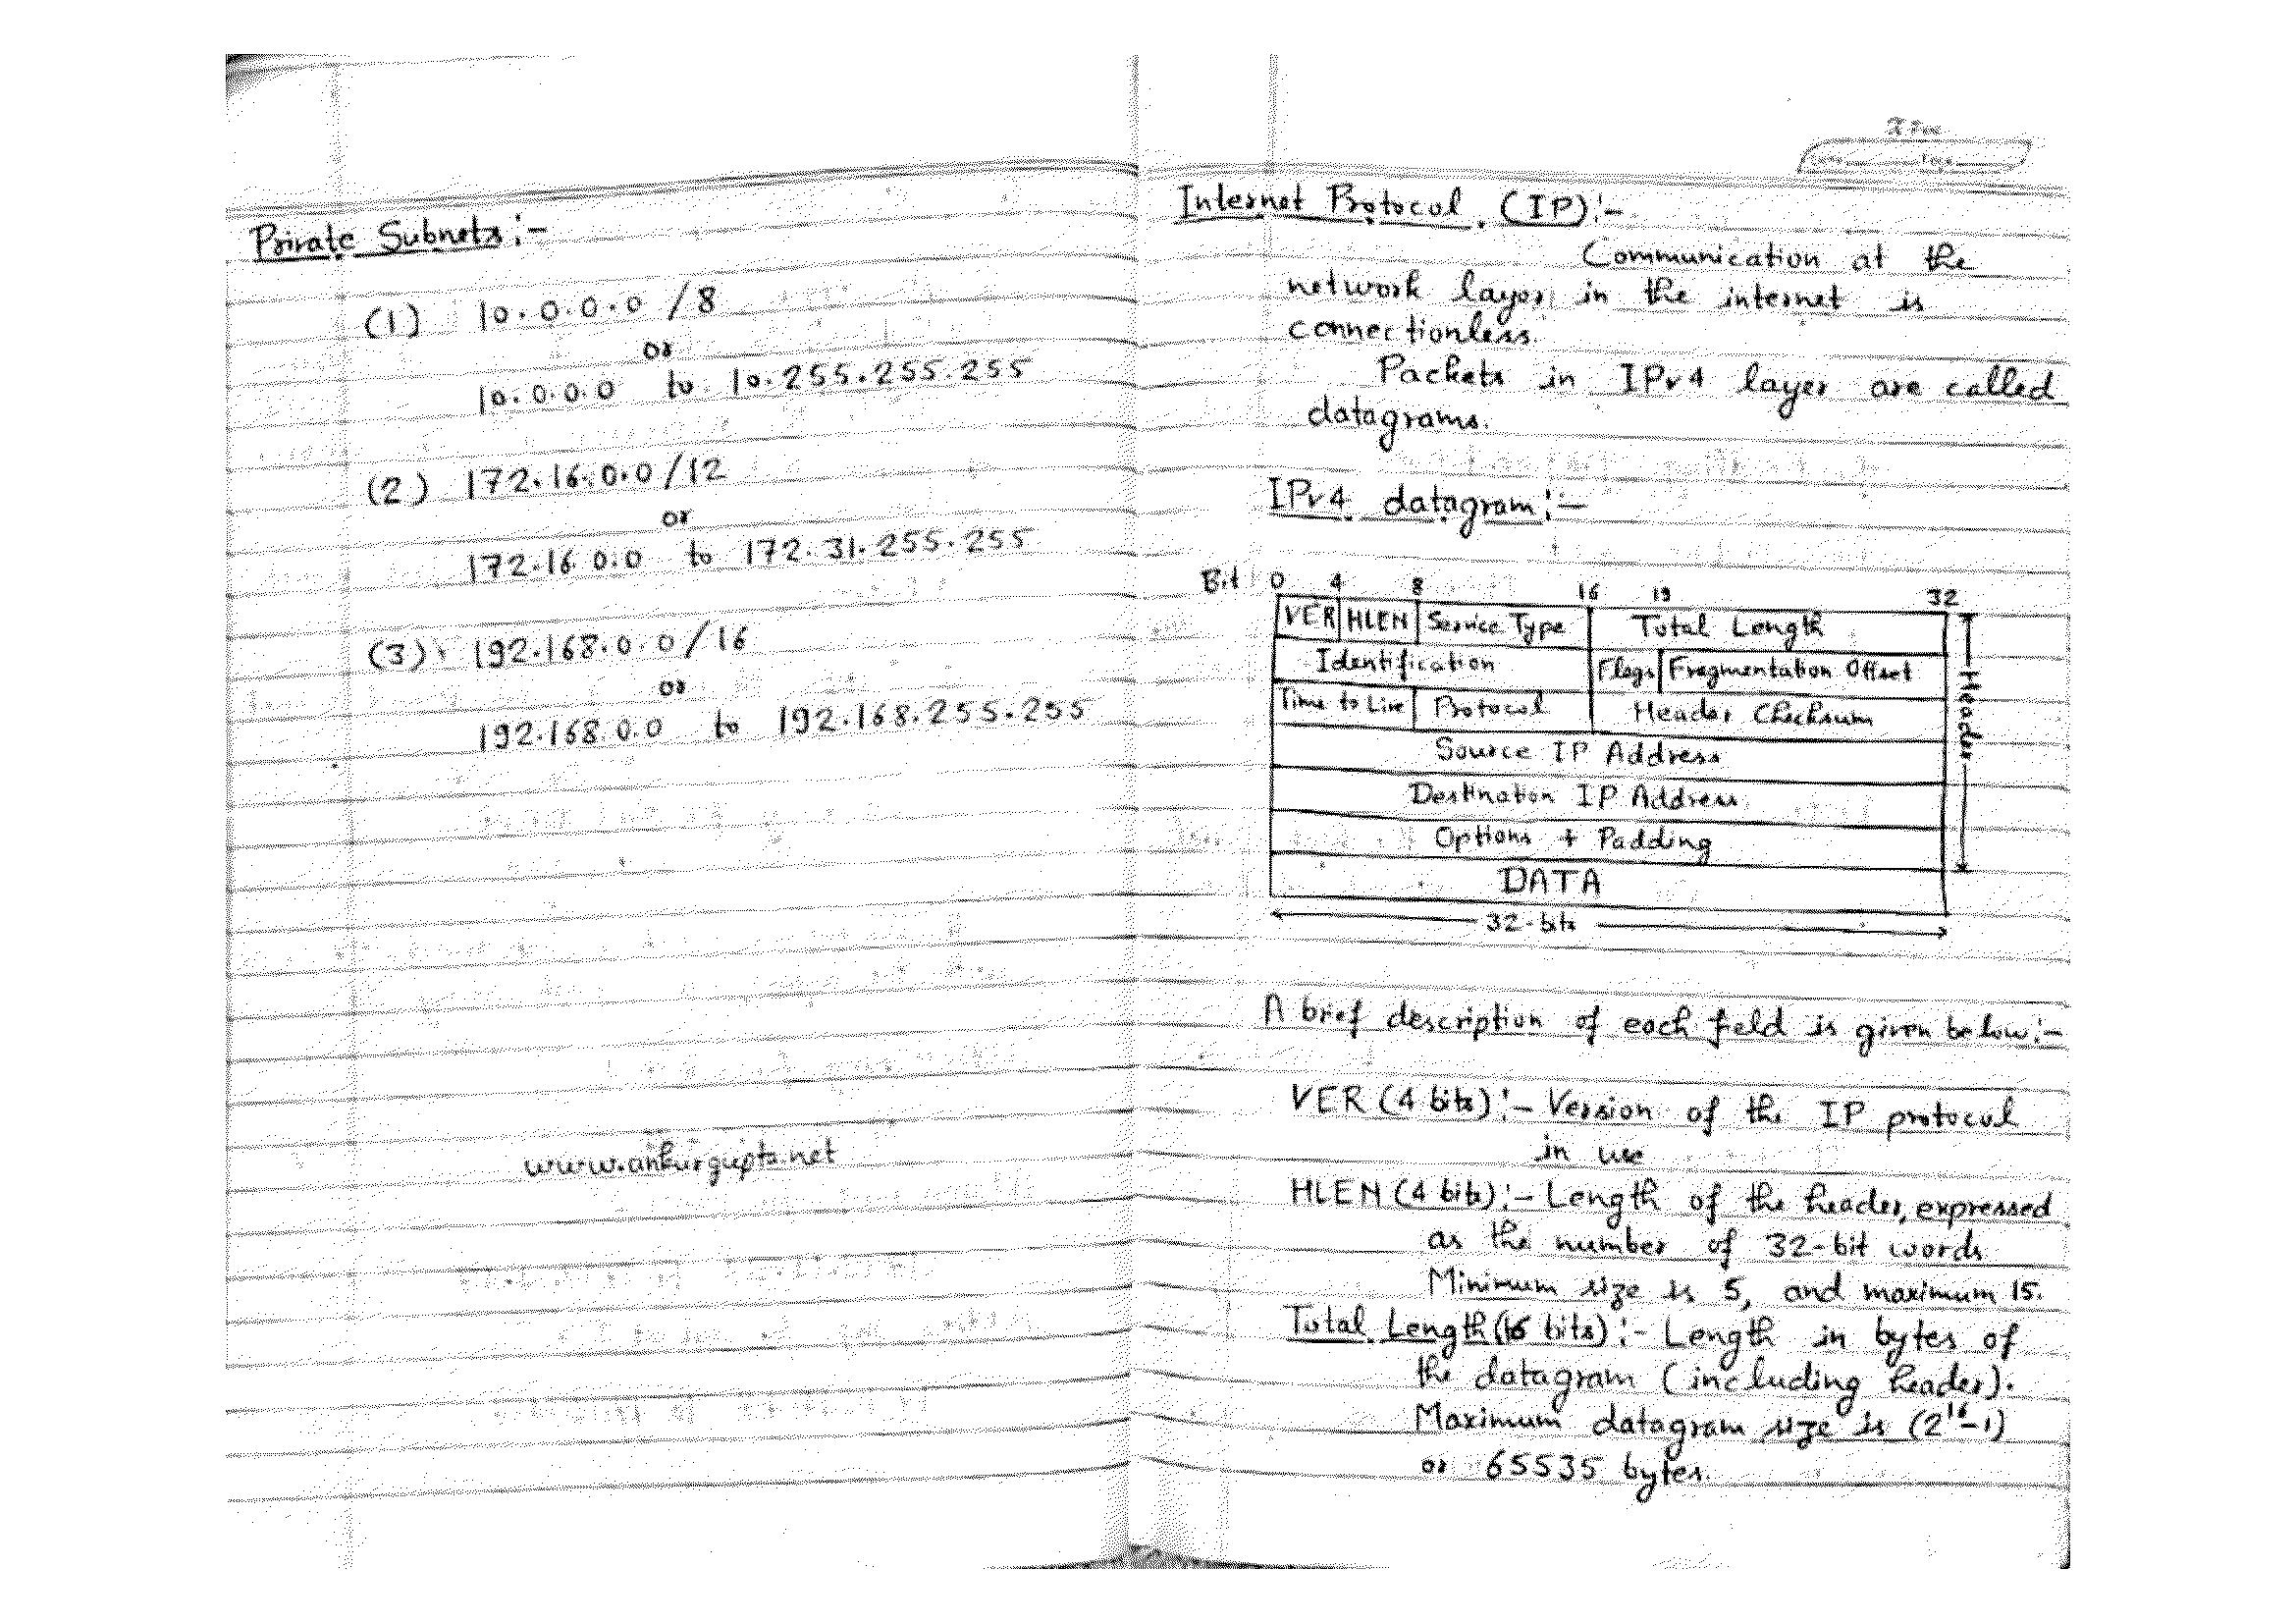 Private Subnets:-
(1) 10.0.0.0 /8
or
10.0.0.0 to 10.255.255.255
(2) 172.16.0.0/12
or
172.16.0.0 to 172.31.255.255
(3) 192.168.0.0/16
or
192.168.0.0 to 192.168.255.255
www.ankurgupta.net
Internet Protocol (IP):-
Communication at the
network layer in the internet is
connectionless.
Packets in IPv4 layer are called
datagrams.
IPv4 datagram:-
Bit 0 4 8 16 19 32
VER HLEN Service Type Total Length
Identification Flags Fragmentation Offset
Time to Live Protocol Header Checksum
Source IP Address
Destination IP Address
Options + Padding
DATA
Header
32-bits
A brief description of each field is given below:-
VER (4 bits):- Version of the IP protocol
in use
HLEN (4 bits):- Length of the header, expressed
as the number of 32-bit words
Minimum size is 5, and maximum 15.
Total Length (16 bits):- Length in bytes of
the datagram (including header).
Maximum datagram size is (2^16-1)
or 65535 bytes.